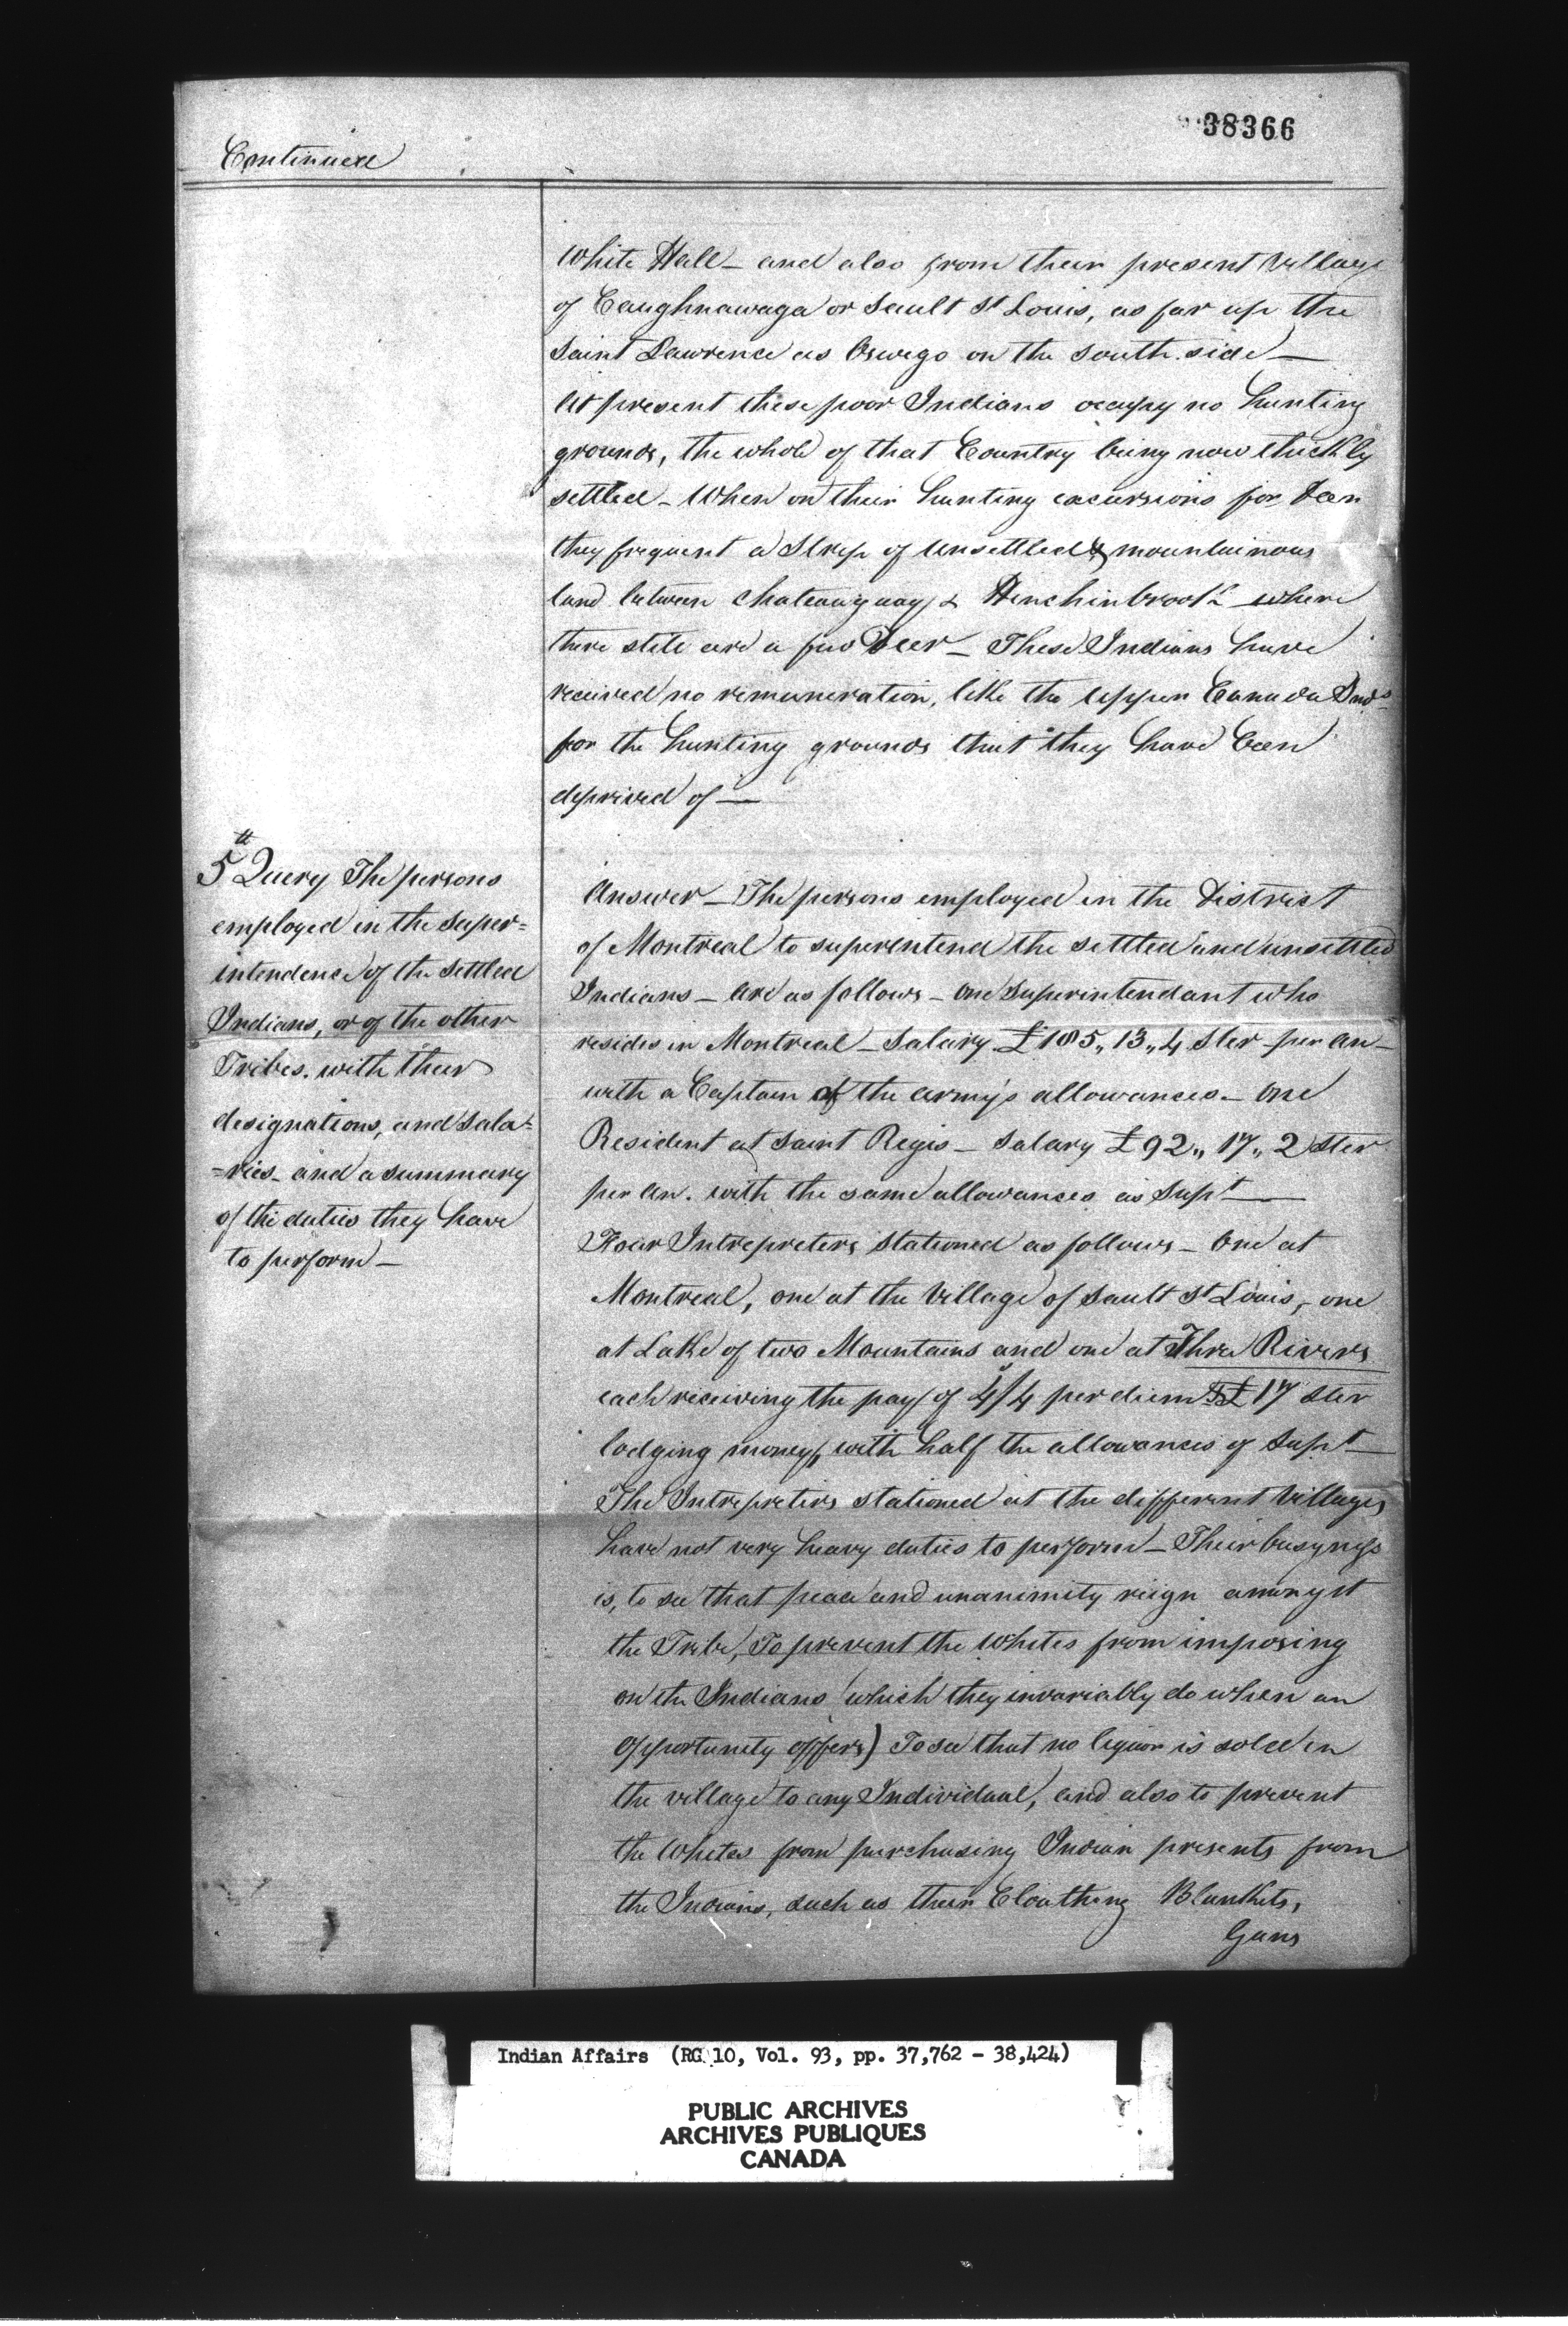 38366
Continued
White Hall – and also from their present Village
of Caughnawaga or Sault St Louis, as far up the
Saint Lawrence as Oswego on the south side –
At present these poor Indians occupy no hunting
grounds, the whole of that Country being now thickly
settled – When on their hunting excursions for Deer
they frequent a Strip of unsettled & mountainous
land between Chateauguay & Hinchinbrook where
there still are a few Deer – These Indians have
received no remuneration, like the Upper Canada Inds
for the hunting grounds that they have been
deprived of –
5th Query The persons
employed in the Super=
intendence of the Settled
Indians, or of the other
Tribes. with their
designations, and Sala=
=ries – and a summary
of the duties they have
to perform –
Answer – The persons employed in the District
of Montreal to superintend the settled and unsettled
Indians – are as follows – One Superintendant who
resides in Montreal – Salary £185,, 13,, 4 Ster per An –
with a Captain of the army's allowances – One
Resident at Saint Regis – Salary £92,, 17,, 2 Ster
per An. with the same allowances as Supt –
Four Intrepreters stationed as follows – One at
Montreal, one at the Village of Sault St Louis, – one
at Lake of two Mountains and one at Three Rivers
each receiving the pay of 4s/4 per diem & £17 Ster
lodging money, with half the allowances of Supt
The Intrepreters stationed at the different Villages
have not very heavy duties to perform – Their busyness
is, to see that peace and unanimity reign amongst
the Tribe, To prevent the Whites from imposing
on the Indians (which they invariably do when an
opportunity offers) To see that no liquor is sold in
the village to any Individual, and also to prevent
the Whites from purchasing Indian presents from
the Indians, such as their Cloathing Blankets,
Guns
Indian Affairs (RG 10, Vol. 93, pp. 37,762 - 38,424)
PUBLIC ARCHIVES
ARCHIVES PUBLIQUES
CANADA